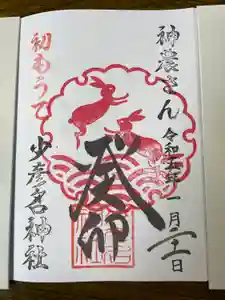 神農さん
令和五年一月二十一日
癸卯
初もうで
少彦名神社